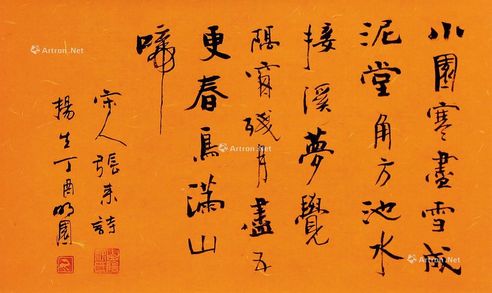 小園寒盡雪成
泥堂角方池水
接溪夢覺
隔窗殘月盡五
更春鳥滿山
啼
宋人張耒詩
揚生丁酉明園
Artron.Net
Artron.Net
Artron.Net
Artron.Net